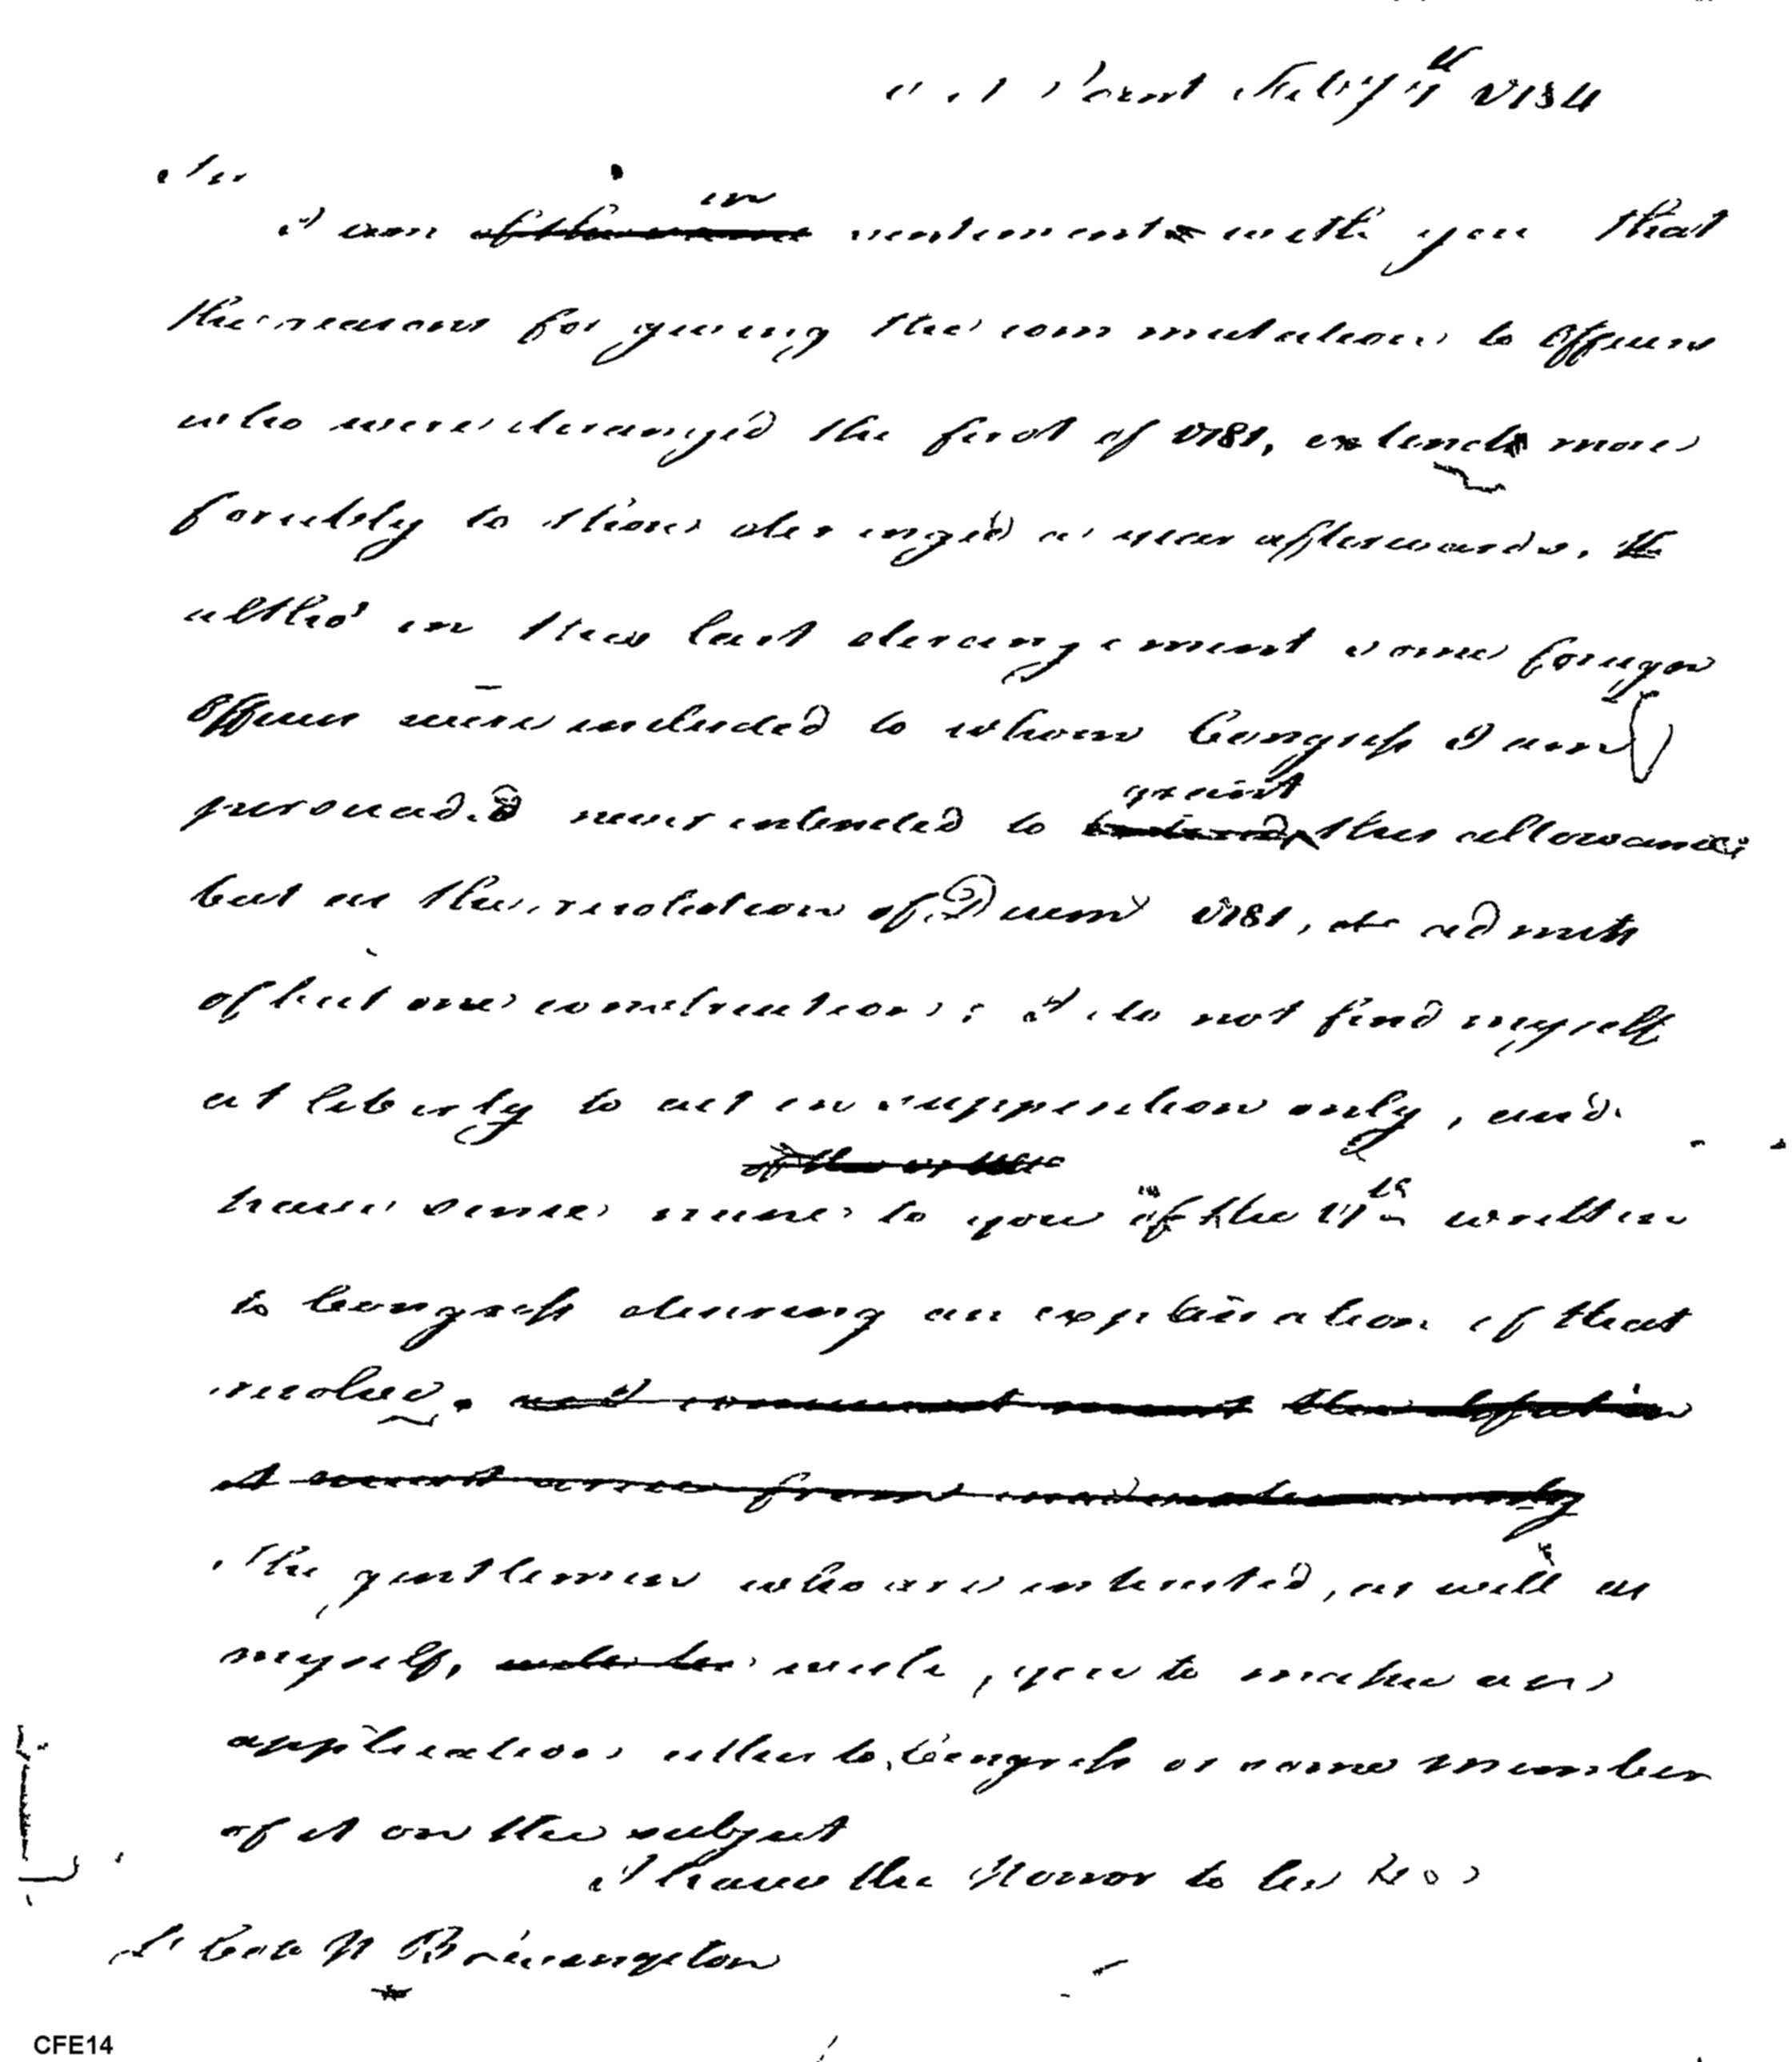 Point Feby 4 1784
Sir
in
I am of the same sentiments with you that
the reasons for giving the commutation to Officers
who were derang'd the first of 1781, extends more
forcibly to those derang'd a year afterwards, the
altho' in this last derangement some foreign
Officers were included to whom Congress I am
grant
persuaded never intended to this allowance;
but as the resolution of Decem 1781, admits
of but one construction; I do not find myself
at liberty to act on supposition only, and
of the
have since mine to you of the written
to Congress desiring an explanation of that
resolve.
it must arise from only
The gentlemen who are interested, as well as
myself, wish, you to make an
application either to Congress or some member
of it on the subject
I have the Honor to be &c
Lt Colo
CFE14